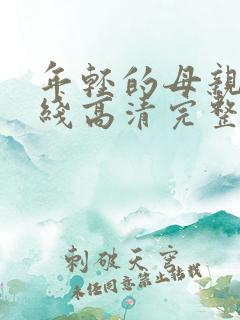 年轻的母亲
线高清完整
刺破天穹
未经同意禁止转载